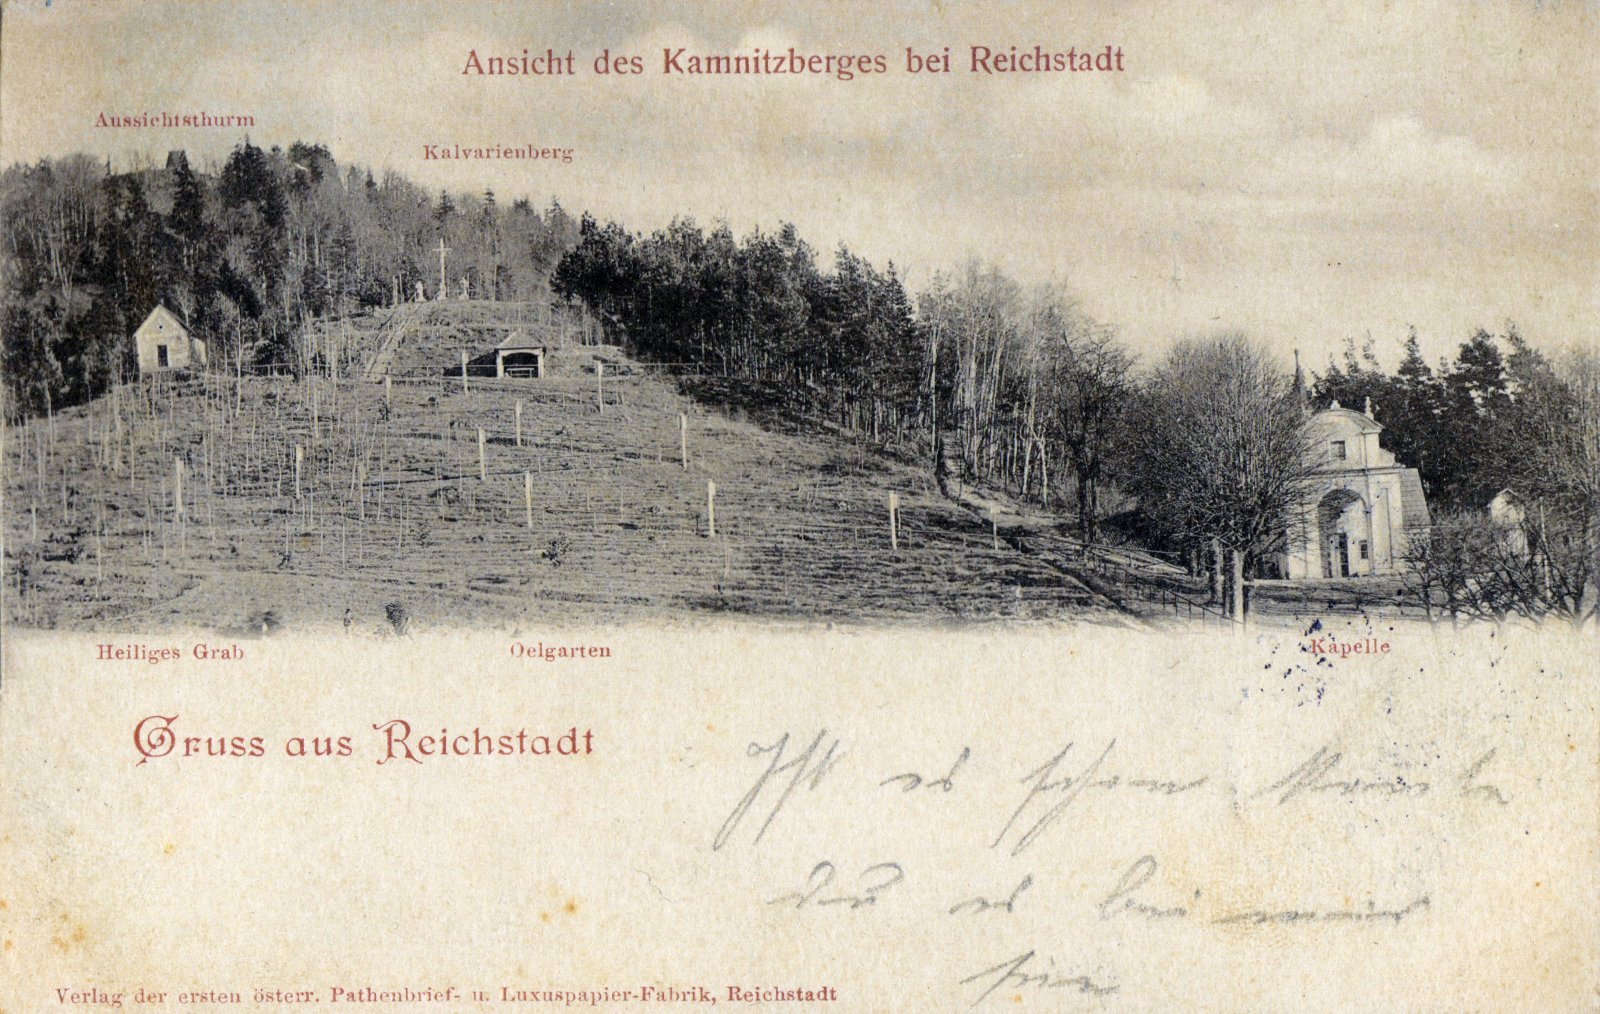 Ansicht des Kamnitzberges bei Reichstadt
Aussichtsthurm
Kalvarienberg
Heiliges Grab
Oelgarten
Kapelle
Gruss aus Reichstadt
Ist es schon
es bei mir
Verlag der ersten österr. Pathenbrief- u. Luxuspapier-Fabrik, Reichstadt